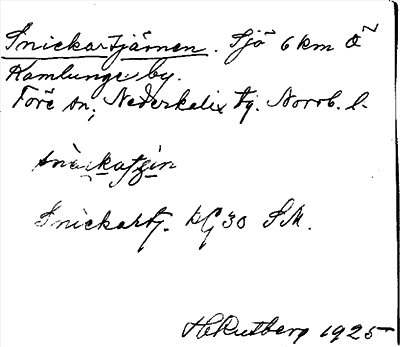 Snickartjärnen. Sjö 6 km Ö
Kamlunge by.
Töre sn, Nederkalix tg. Norrb. l.
Snickartj. kG 30 SM.
H Rutberg 1925